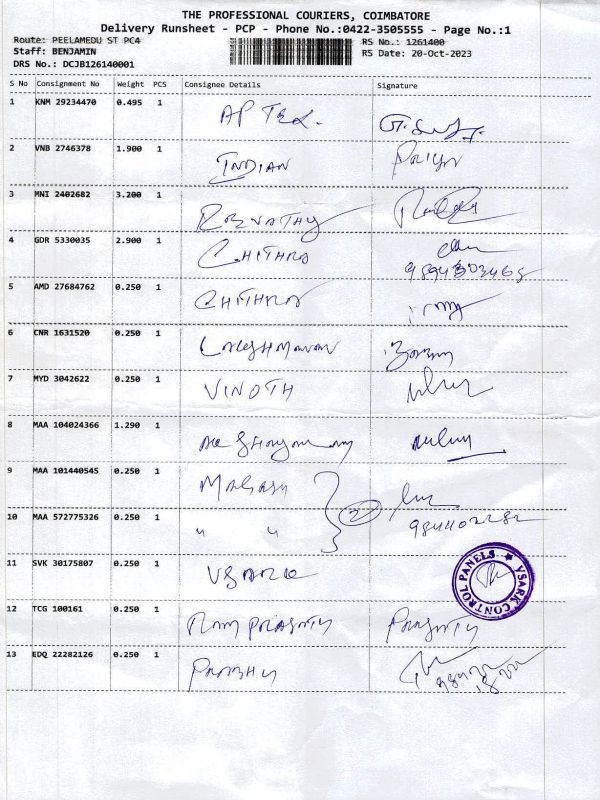 THE PROFESSIONAL COURIERS, COIMBATORE
Delivery Runsheet - PCP - Phone No.:0422-3505555 - Page No.:1
Route: PEELAMEDU ST PC4 RS No.: 1261400
Staff: BENJAMIN RS Date: 20-Oct-2023
DRS No.: DCJB126140001
S No Consignment No Weight PCS Consignee Details Signature
1 KNM 29234470 0.495 1
2 VNB 2746378 1.900 1 INDIAN Priya
3 MNI 2402682 3.200 1 REVATHY
4 GDR 5330035 2.900 1 CHITHRA
5 AMD 27684762 0.250 1 CHITHRA
6 CNR 1631520 0.250 1
7 MYD 3042622 0.250 1 VINOTH
8 MAA 104024366 1.290 1
9 MAA 101440545 0.250 1
10 MAA 572775326 0.250 1 " " 2
11 SVK 30175807 0.250 1 VSARK
YSARK CONTROL PANELS
12 TCG 100161 0.250 1 RAM PRASATH PRASATH
13 EDQ 22282126 0.250 1 PRABHU